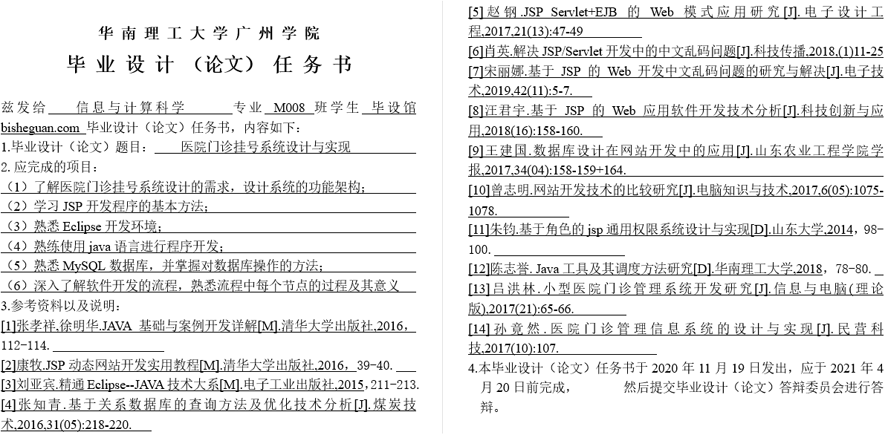 华南理工大学广州学院
毕业设计（论文）任务书
兹发给 信息与计算科学 专业 M008 班学生 毕设馆
bisheguan.com 毕业设计（论文）任务书，内容如下：
1.毕业设计（论文）题目： 医院门诊挂号系统设计与实现
2. 应完成的项目：
（1）了解医院门诊挂号系统设计的需求，设计系统的功能架构；
（2）学习 JSP 开发程序的基本方法；
（3）熟悉 Eclipse 开发环境；
（4）熟练使用 java 语言进行程序开发；
（5）熟悉 MySQL 数据库，并掌握对数据库操作的方法；
（6）深入了解软件开发的流程，熟悉流程中每个节点的过程及其意义
3.参考资料以及说明：
[1]张孝祥,徐明华.JAVA 基础与案例开发详解[M].清华大学出版社,2016，
112-114.
[2]康牧.JSP 动态网站开发实用教程[M].清华大学出版社,2016，39-40.
[3]刘亚宾.精通 Eclipse--JAVA 技术大系[M].电子工业出版社,2015，211-213.
[4]张知青.基于关系数据库的查询方法及优化技术分析[J].煤炭技
术,2016,31(05):218-220.
[5]赵钢.JSP Servlet+EJB 的 Web 模式应用研究[J].电子设计工
程,2017,21(13):47-49
[6]肖英.解决 JSP/Servlet 开发中的中文乱码问题[J].科技传播,2018,(1)11-25
[7]宋丽娜.基于 JSP 的 Web 开发中文乱码问题的研究与解决[J].电子技
术,2019,42(11):5-7.
[8]汪君宇.基于 JSP 的 Web 应用软件开发技术分析[J].科技创新与应
用,2018(16):158-160.
[9]王建国.数据库设计在网站开发中的应用[J].山东农业工程学院学
报,2017,34(04):158-159+164.
[10]曾志明.网站开发技术的比较研究[J].电脑知识与技术,2017,6(05):1075-
1078.
[11]朱钧.基于角色的 jsp 通用权限系统设计与实现[D].山东大学,2014，98-
100.
[12]陈志誉. Java 工具及其调度方法研究[D].华南理工大学,2018，78-80.
[13]吕洪林.小型医院门诊管理系统开发研究[J].信息与电脑(理论
版),2017(21):65-66.
[14]孙竟然.医院门诊管理信息系统的设计与实现[J].民营科
技,2017(10):107.
4.本毕业设计（论文）任务书于 2020 年 11 月 19 日发出，应于 2021 年 4
月 20 日前完成， 然后提交毕业设计（论文）答辩委员会进行答
辩。